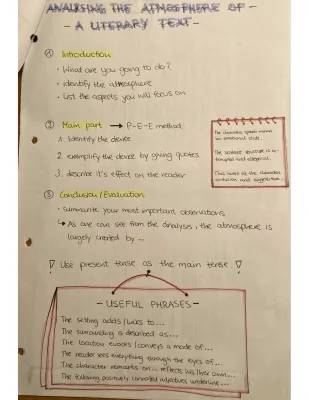 ANALYSING THE ATMOSPHERE OF -
- A LITERARY TEXT -
① Introduction
• What are you going to do?
• identify the atmosphere
• List the aspects you will focus on
② Main part → P-E-E method
1. Identify the device
2. exemplify the device by giving quotes
3. describe it's effect on the reader
The sentence structure is
③ Conclusion/Evaluation
• summarize your most important observations
↳ As one can see from the analysis, the atmosphere is
largely created by ...
! Use present tense as the main tense !
- USEFUL PHRASES -
The setting adds/links to...
The surrounding is described as...
The location evokes/conveys a mode of...
The reader sees everything through the eyes of...
The character remarks on ... reflects his/her own...
The following positively connoted adjectives underline...